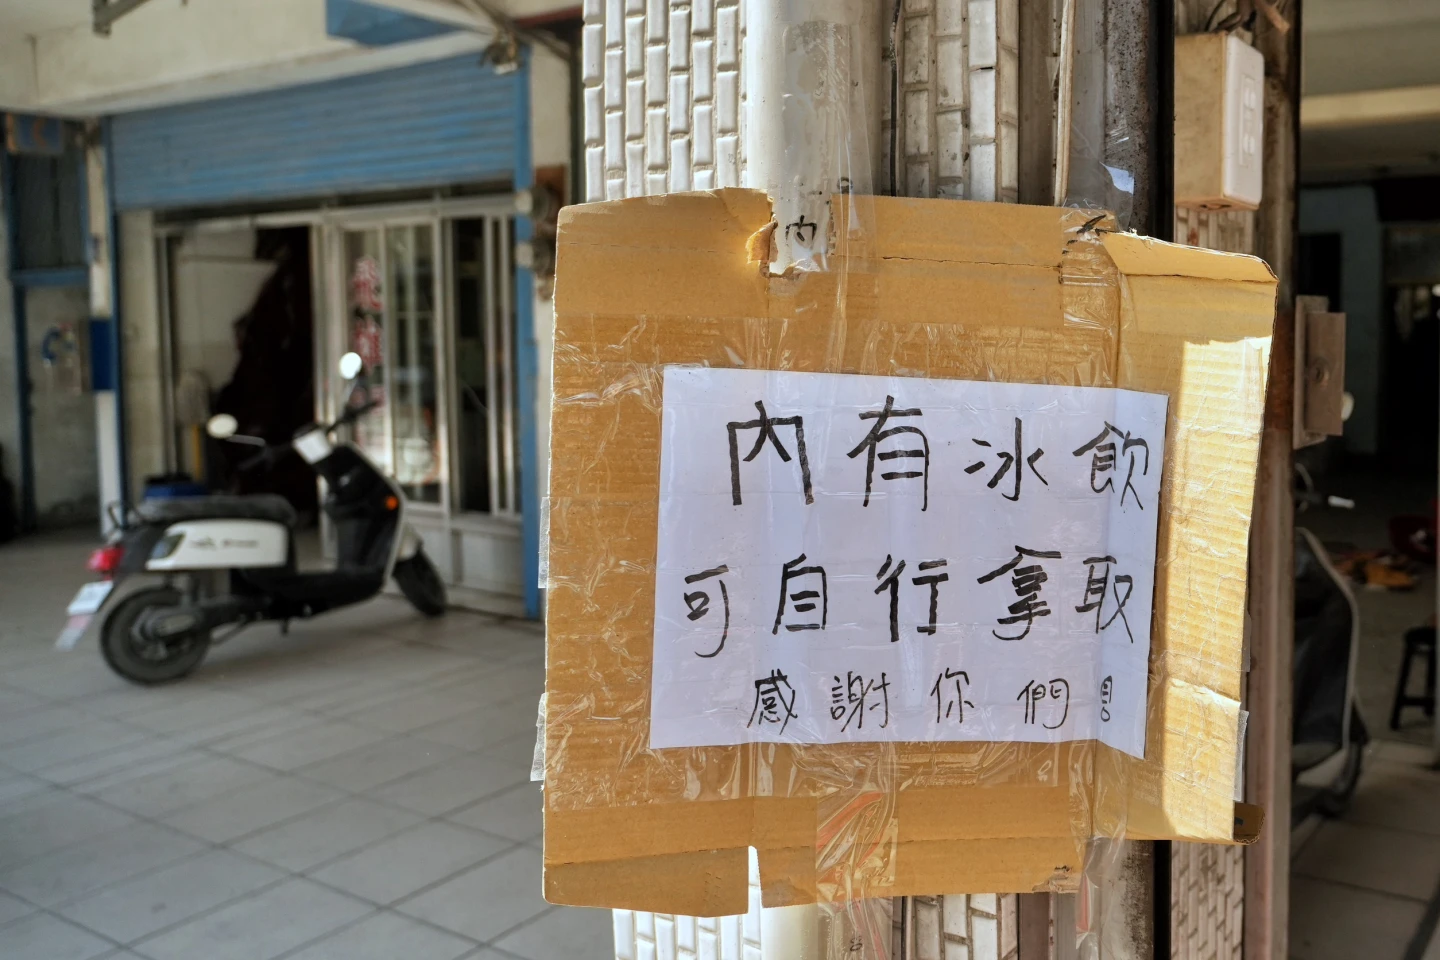 內
內有冰飲
可自行拿取
感謝你們!